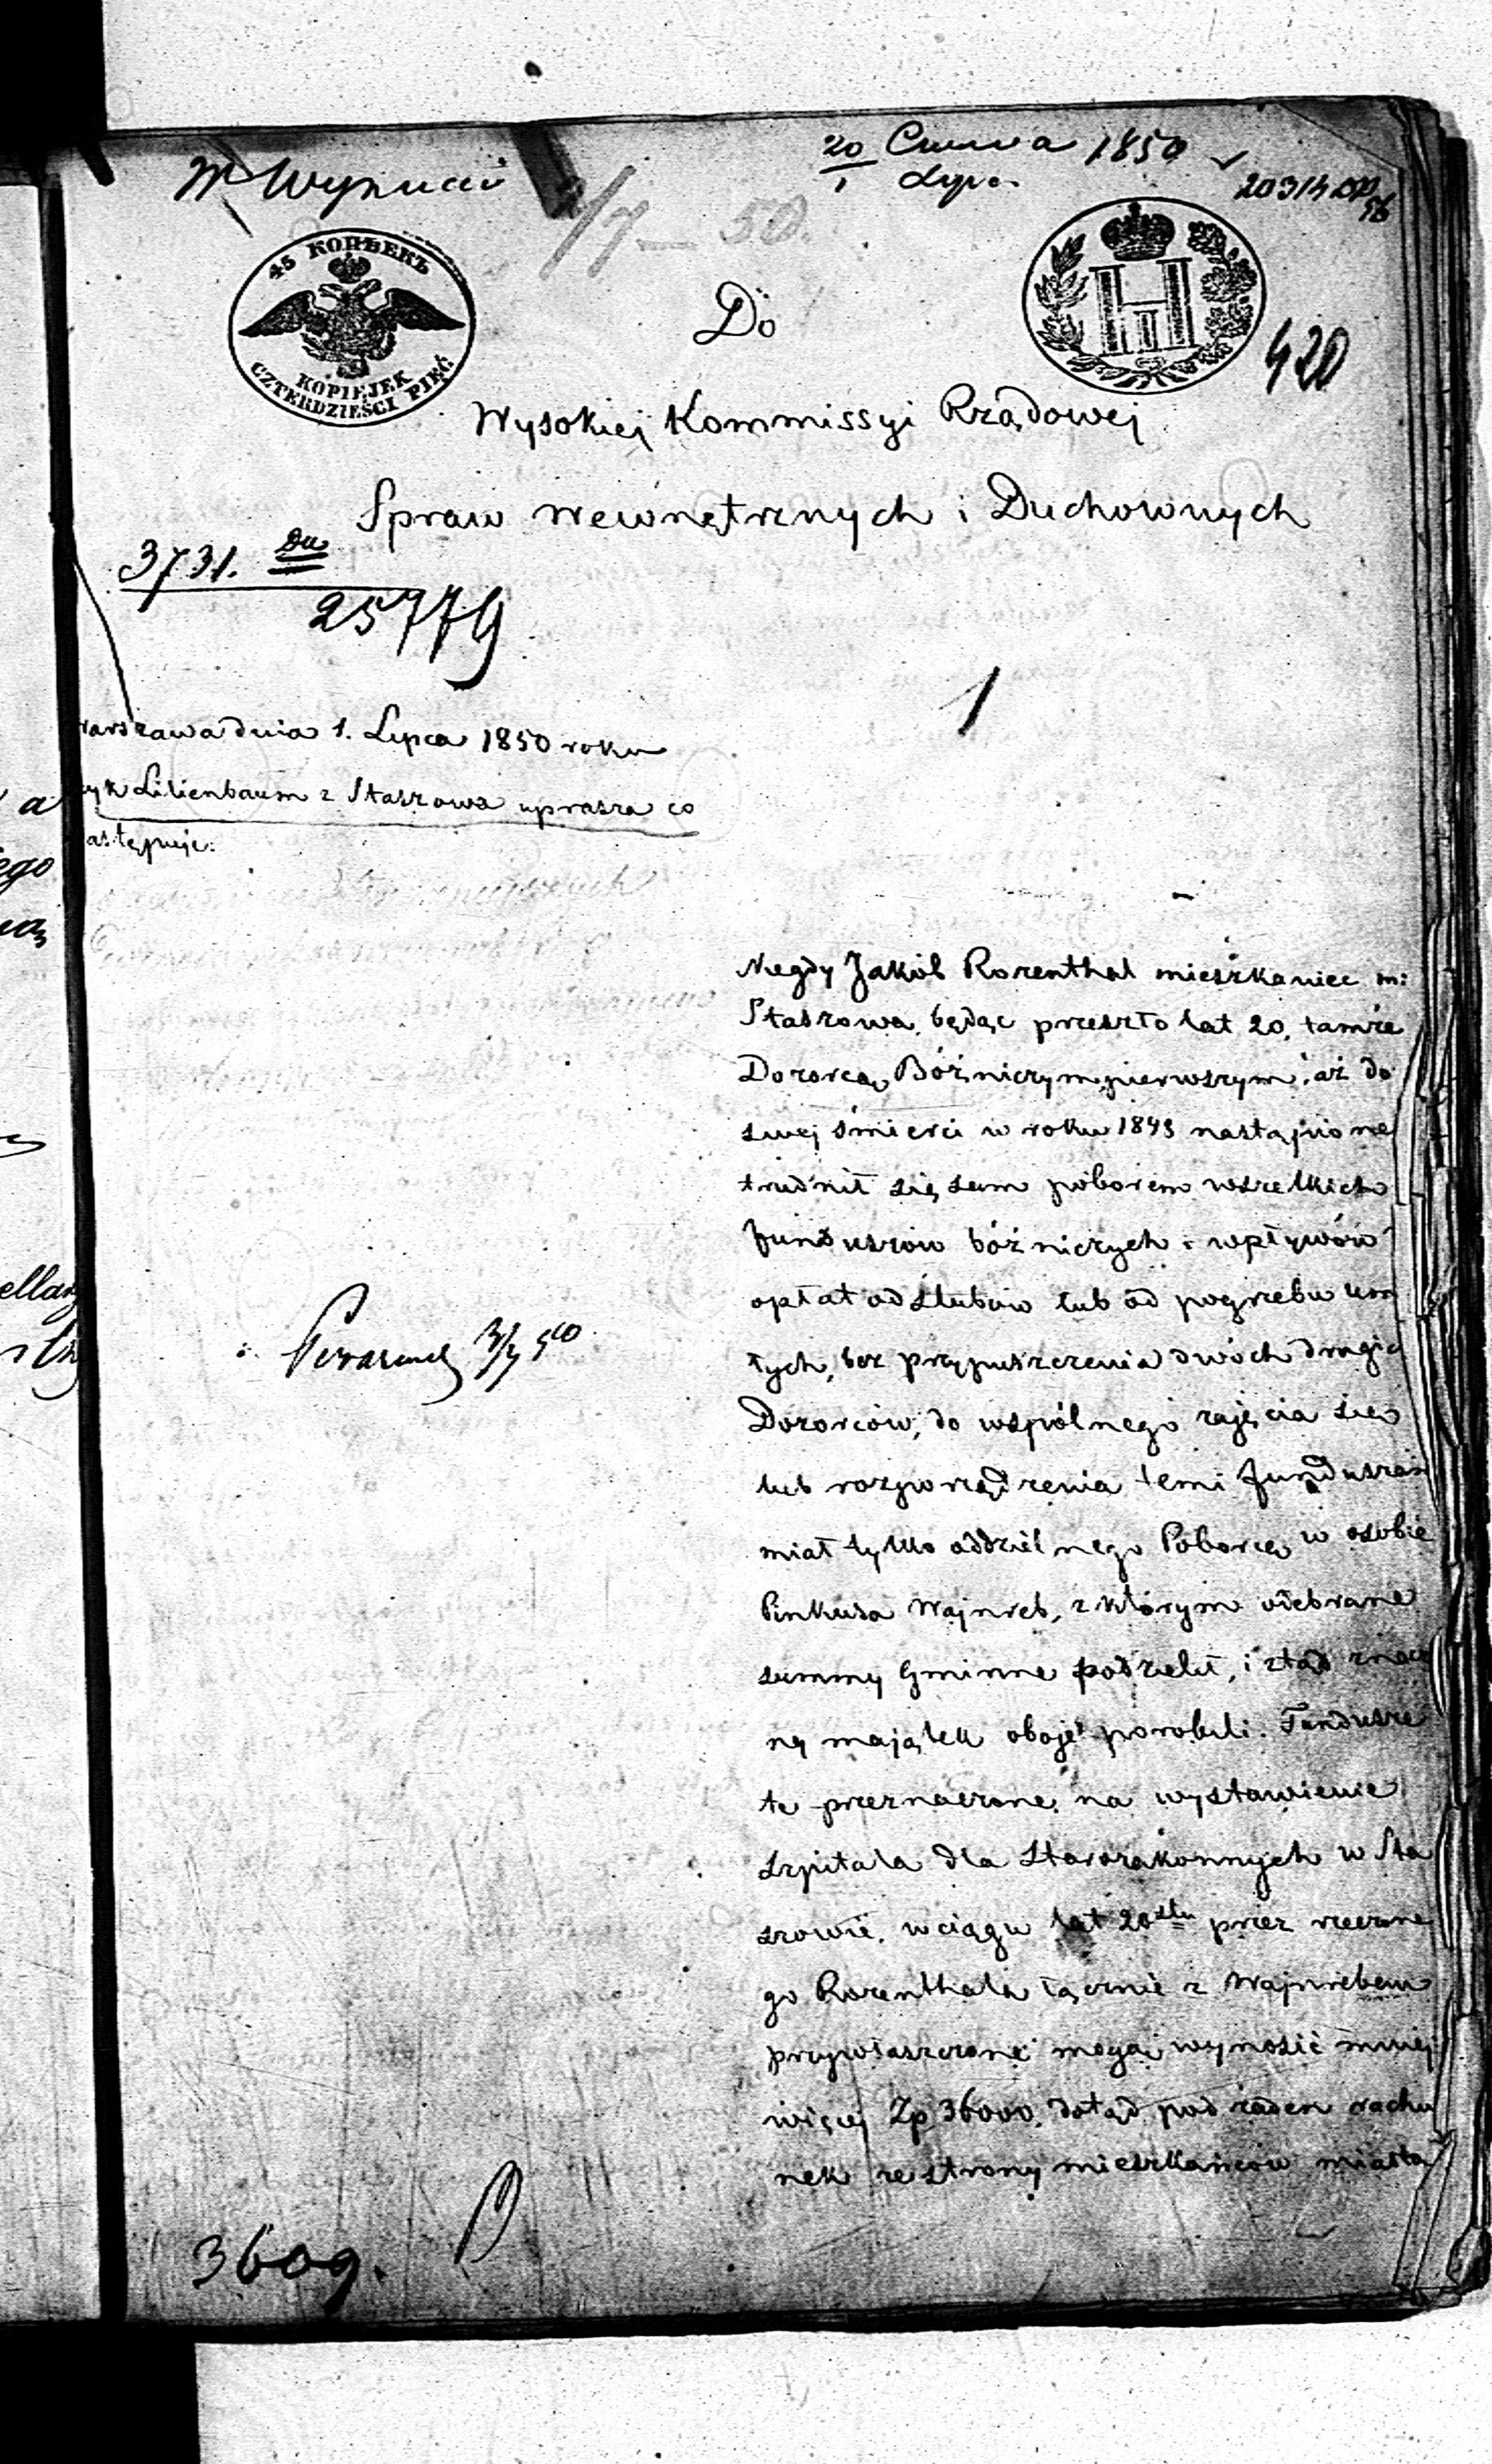 20 Czerwca 1850
1 Lipca
20314
1/7 – 50.
45 КОПѢЕКЪ
KOPIEJEK
CZTERDZIEŚCI PIĘĆ
Do
420
Wysokiej Kommissyi Rządowej
Spraw wewnętrznych i Duchownych
3731.
25779
1
warszawa dnia 1. Lipca 1850 roku
Lilienbaum z Staszowa uprasza co
astępuje:
Niegdy Jakób Rozenthal mieszkaniec m:
Staszowa, będąc przeszło lat 20, tamże
Dozorcą Bóżniczym pierwszym, aż do
swej śmierci w roku 1843 nastąpione
trudnił się sam poborem wszelkich
funduszów bóżniczych i wpływów
opłat od ślubów lub od pogrzebu um
łych, bez przypuszczenia dwóch drugic
Dozorców, do wspólnego zajęcia się
lub rozporządzenia temi funduszam
miał tylko oddzielnego Poborcę w osobie
Pinkusa Wajnreb, z którym odebrane
summy Gminne podzielił, i ztąd znacz
ny majątek oboje porobili. Fundusze
te przeznaczone na wystawienie
szpitala dla starozakonnych w Sta
szowie, w ciągu lat 20stu przez rzeczone
go Rozenthala łącznie z Wajnrebem
przywłaszczone mogą wynosić mniej
więcej Zp 36000, dotąd pod żaden rachu
nek ze strony mieszkańców miasta
3609.